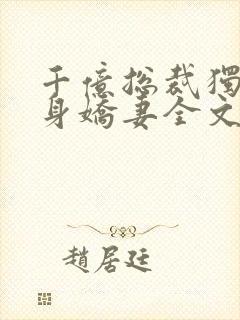 千億總裁獨
身嬌妻全文
趙居廷